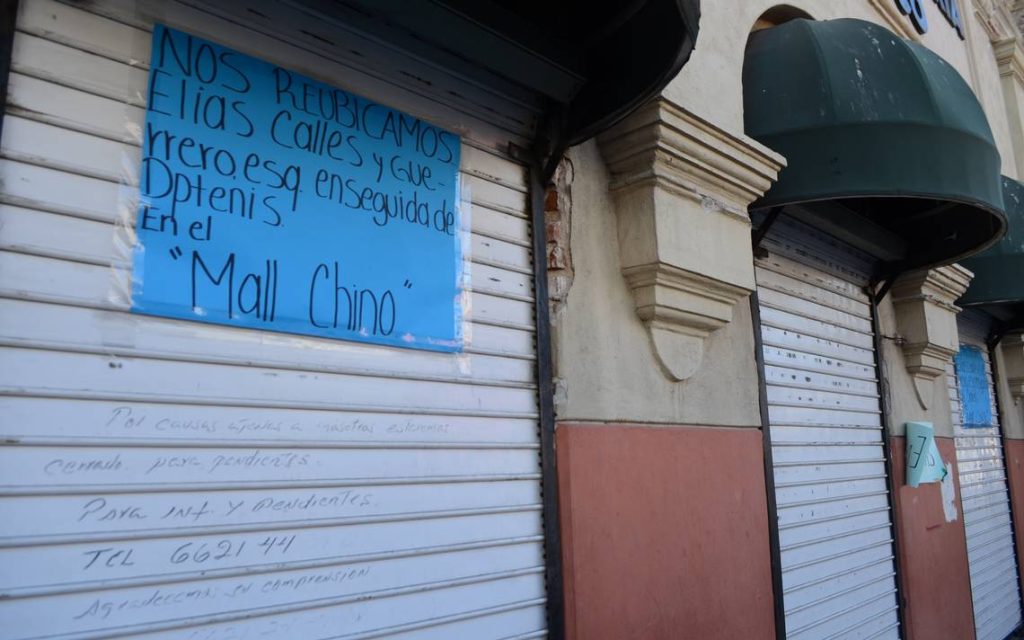 NOS REUBICAMOS
Elias Calles y Gue-
rrero, esq. enseguida de
Dptenis.
En el
"Mall Chino"
Por causas ajenas a nosotros estaremos
cerrado para pendientes.
Para inf. y pendientes.
TEL 6621 44
Agradecemos su comprension